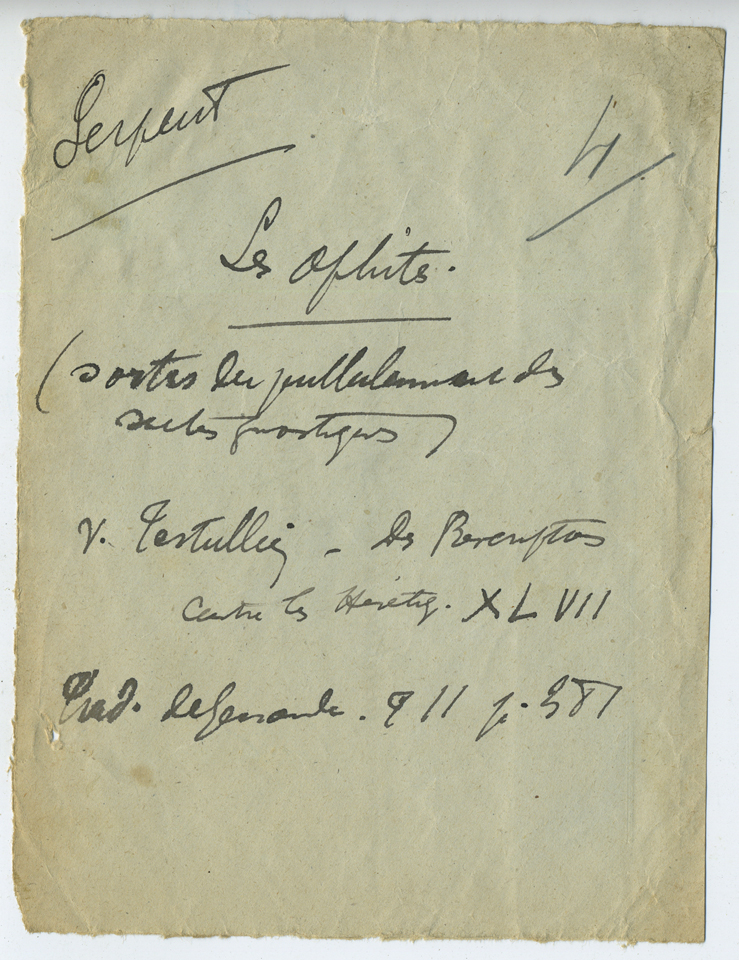 Serpent
4
Les Ophites.
(sortes de pullulement des
sectes gnostiques)
V. Tertullien - Des Prescriptions
contre les Hérétiq. XLVII
Trad. de Genoude. T II p. 381